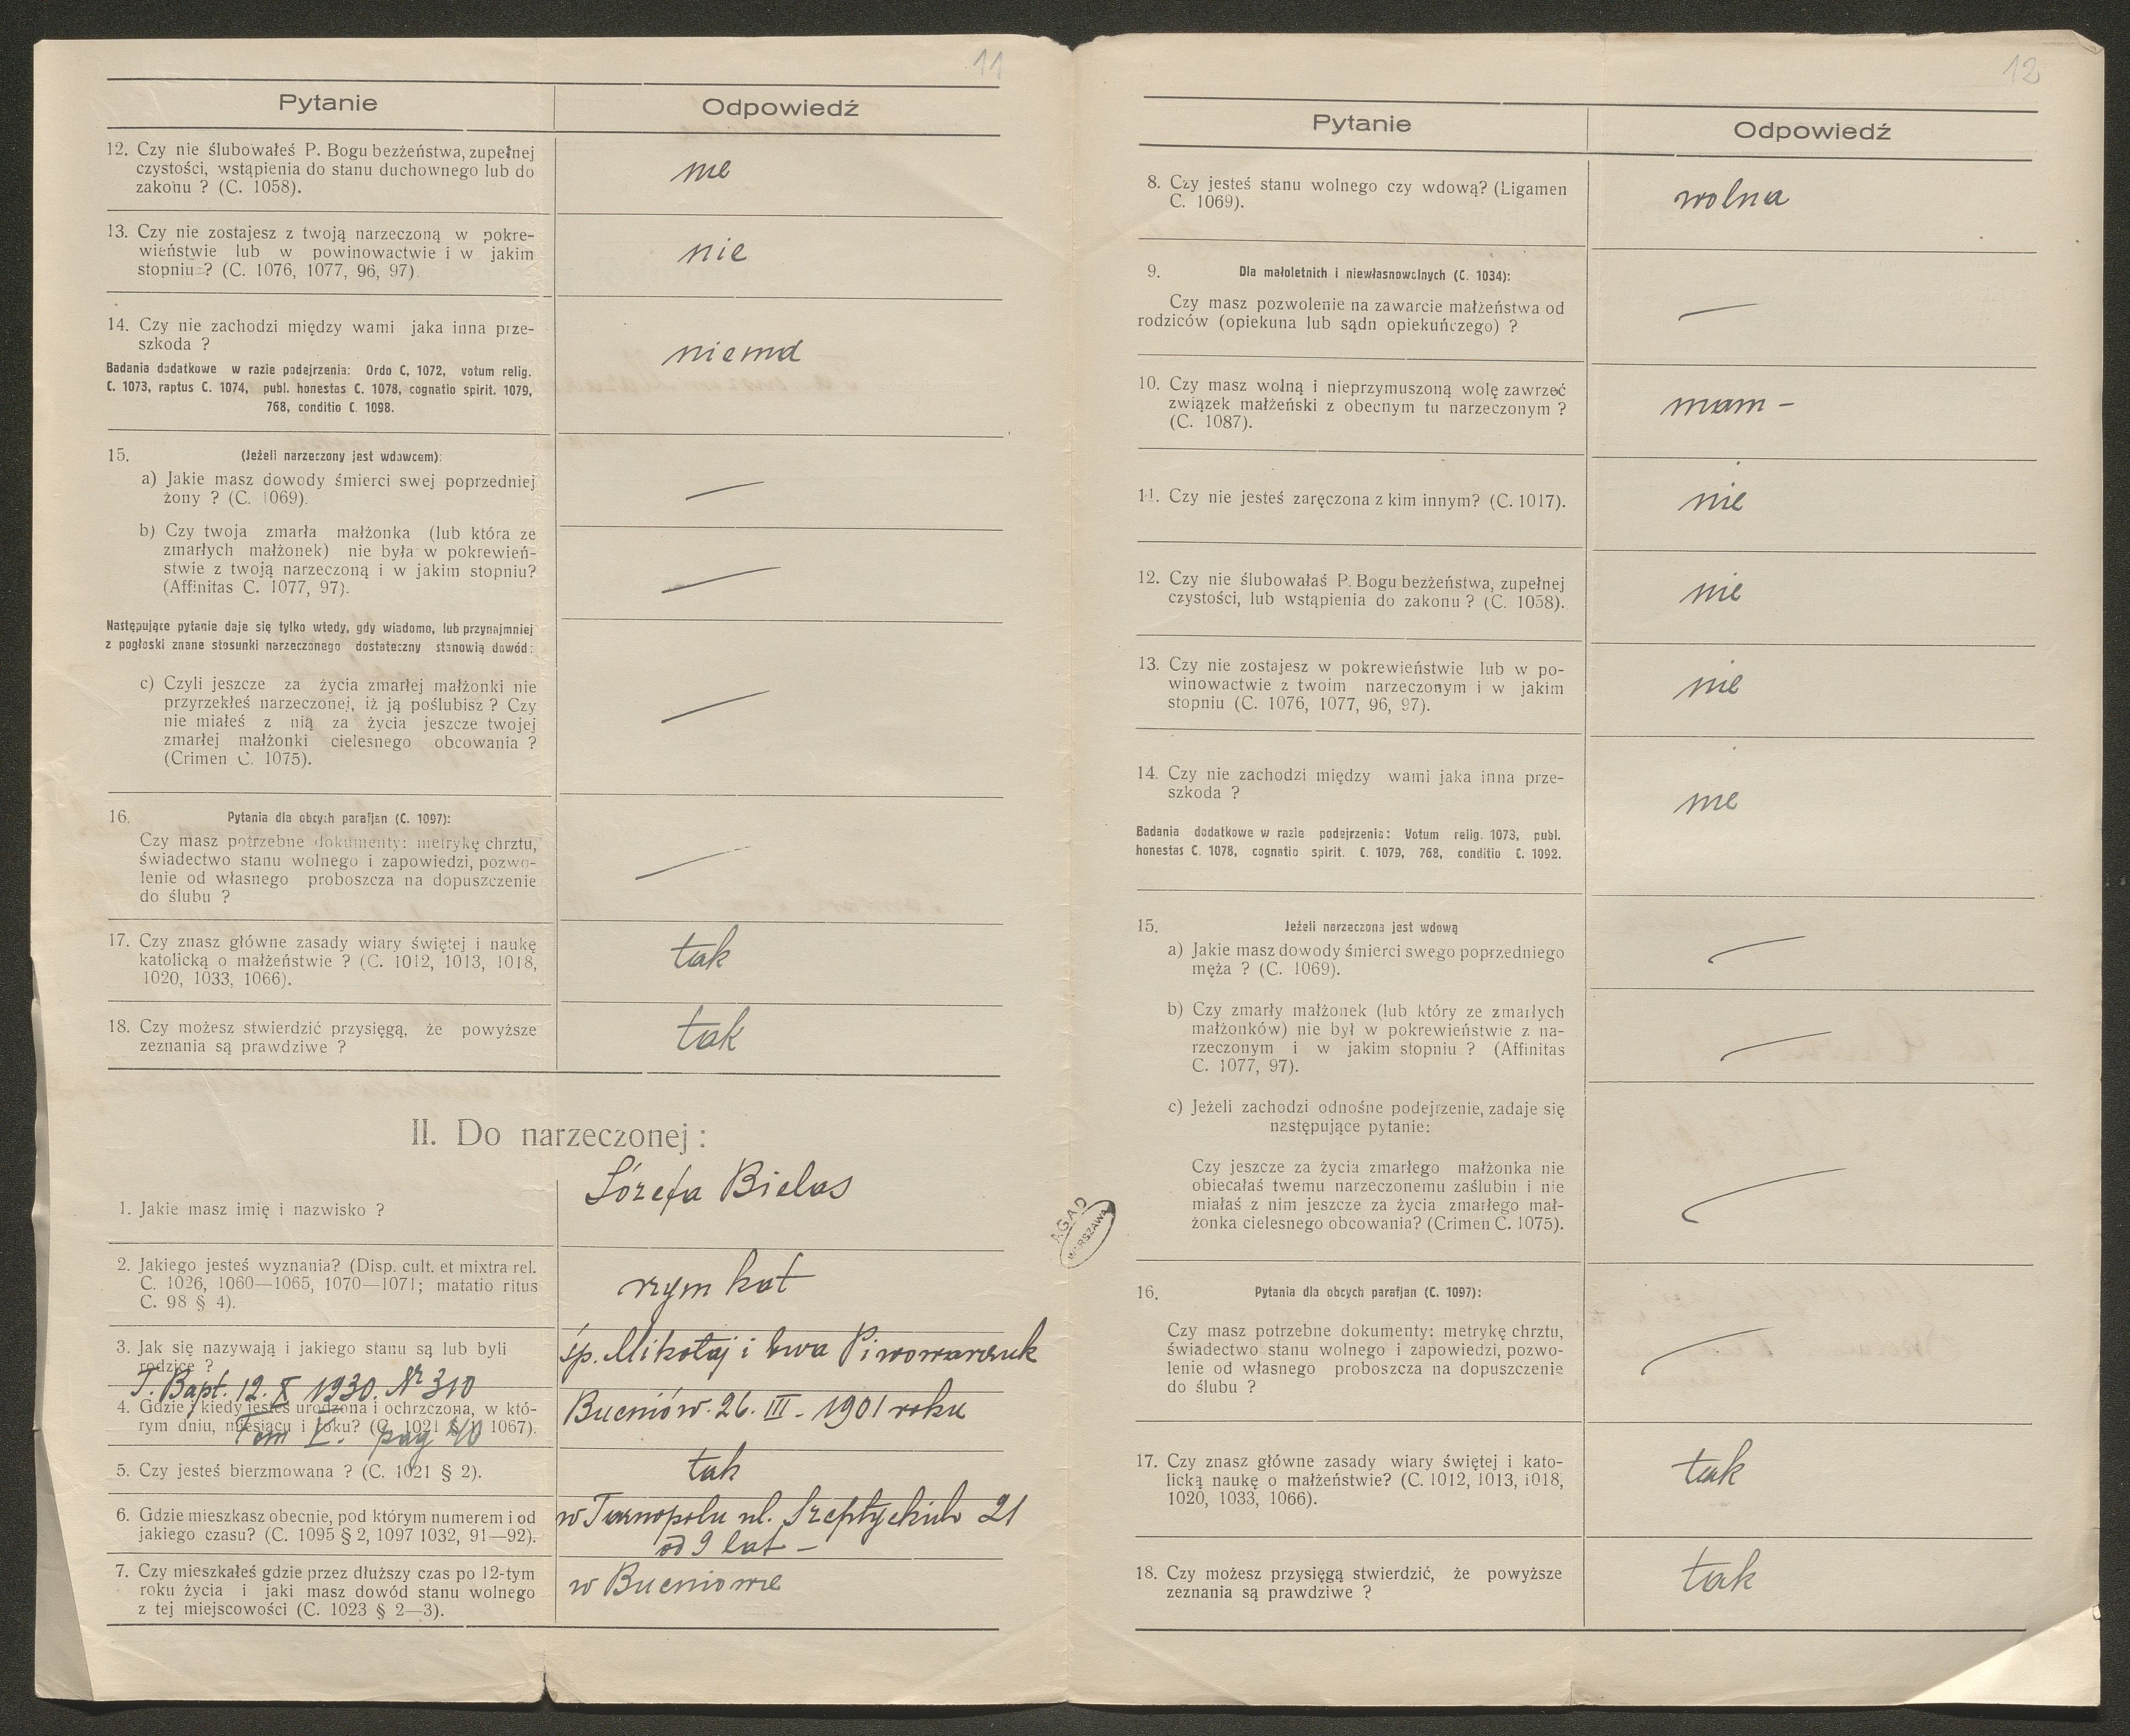 11
Pytanie
Odpowiedź
12. Czy nie ślubowałeś P. Bogu bezżeństwa, zupełnej
czystości, wstąpienia do stanu duchownego lub do
zakonu ? (C. 1058).
nie
13. Czy nie zostajesz z twoją narzeczoną w pokre-
wieństwie lub w powinowactwie i w jakim
stopniu ? (C. 1076, 1077, 96, 97).
nie
14. Czy nie zachodzi między wami jaka inna prze-
szkoda ?
niema
Badania dodatkowe w razie podejrzenia: Ordo C, 1072, votum relig.
C. 1073, raptus C. 1074, publ. honestas C. 1078, cognatio spirit. 1079,
768, conditio C. 1098.
15. (Jeżeli narzeczony jest wdowcem):
a) Jakie masz dowody śmierci swej poprzedniej
żony ? (C. 1069).
—
b) Czy twoja zmarła małżonka (lub która ze
zmarłych małżonek) nie była w pokrewień-
stwie z twoją narzeczoną i w jakim stopniu?
(Affinitas C. 1077, 97).
—
Następujące pytanie daje się tylko wtedy, gdy wiadomo, lub przynajmniej
z pogłoski znane stosunki narzeczonego dostateczny stanowią dowód:
c) Czyli jeszcze za życia zmarłej małżonki nie
przyrzekłeś narzeczonej, iż ją poślubisz ? Czy
nie miałeś z nią za życia jeszcze twojej
zmarłej małżonki cielesnego obcowania ?
(Crimen C. 1075).
—
16. Pytania dla obcych parafjan (C. 1097):
Czy masz potrzebne dokumenty: metrykę chrztu,
świadectwo stanu wolnego i zapowiedzi, pozwo-
lenie od własnego proboszcza na dopuszczenie
do ślubu ?
—
17. Czy znasz główne zasady wiary świętej i naukę
katolicką o małżeństwie ? (C. 1012, 1013, 1018,
1020, 1033, 1066).
tak
18. Czy możesz stwierdzić przysięgą, że powyższe
zeznania są prawdziwe ?
tak
II. Do narzeczonej :
1. Jakie masz imię i nazwisko ?
Józefa Bielas
2. Jakiego jesteś wyznania? (Disp. cult. et mixtra rel.
C. 1026, 1060—1065, 1070—1071; matatio ritus
C. 98 § 4).
rzym kat
3. Jak się nazywają i jakiego stanu są lub byli
rodzice ?
śp. Mikołaj i Ewa Piwowarczuk
T. Bapt. 12. X 1930. Nr 310
4. Gdzie i kiedy jesteś urodzona i ochrzczona, w któ-
rym dniu, miesiącu i roku? (C. 1021 § 1067).
Tom X. pag 40
Bucniów. 26. III - 1901 roku
5. Czy jesteś bierzmowana ? (C. 1021 § 2).
tak
6. Gdzie mieszkasz obecnie, pod którym numerem i od
jakiego czasu? (C. 1095 § 2, 1097 1032, 91—92).
w Tarnopolu ul. Szeptyckich 21
od 9 lat —
7. Czy mieszkałeś gdzie przez dłuższy czas po 12-tym
roku życia i jaki masz dowód stanu wolnego
z tej miejscowości (C. 1023 § 2—3).
w Bucniowie
AGAD
WARSZAWA
12
Pytanie
Odpowiedź
8. Czy jesteś stanu wolnego czy wdową? (Ligamen
C. 1069).
wolna
9. Dla małoletnich i niewłasnowolnych (C. 1034):
Czy masz pozwolenie na zawarcie małżeństwa od
rodziców (opiekuna lub sądn opiekuńczego) ?
—
10. Czy masz wolną i nieprzymuszoną wolę zawrzeć
związek małżeński z obecnym tu narzeczonym ?
(C. 1087).
mam —
11. Czy nie jesteś zaręczona z kim innym? (C. 1017).
nie
12. Czy nie ślubowałaś P. Bogu bezżeństwa, zupełnej
czystości, lub wstąpienia do zakonu ? (C. 1058).
nie
13. Czy nie zostajesz w pokrewieństwie lub w po-
winowactwie z twoim narzeczonym i w jakim
stopniu (C. 1076, 1077, 96, 97).
nie
14. Czy nie zachodzi między wami jaka inna prze-
szkoda ?
nie
Badania dodatkowe w razie podejrzenia: Votum relig. 1073, publ.
honestas C. 1078, cognatio spirit. C. 1079, 768, conditio C. 1092.
15. Jeżeli narzeczona jest wdową
a) Jakie masz dowody śmierci swego poprzedniego
męża ? (C. 1069).
—
b) Czy zmarły małżonek (lub który ze zmarłych
małżonków) nie był w pokrewieństwie z na-
rzeczonym i w jakim stopniu ? (Affinitas
C. 1077, 97).
—
c) Jeżeli zachodzi odnośne podejrzenie, zadaje się
następujące pytanie:
Czy jeszcze za życia zmarłego małżonka nie
obiecałaś twemu narzeczonemu zaślubin i nie
miałaś z nim jeszcze za życia zmarłego mał-
żonka cielesnego obcowania? (Crimen C. 1075).
—
16. Pytania dla obcych parafjan (C. 1097):
Czy masz potrzebne dokumenty: metrykę chrztu,
świadectwo stanu wolnego i zapowiedzi, pozwo-
lenie od własnego proboszcza na dopuszczenie
do ślubu ?
—
17. Czy znasz główne zasady wiary świętej i kato-
licką naukę o małżeństwie? (C. 1012, 1013, 1018,
1020, 1033, 1066).
tak
18. Czy możesz przysięgą stwierdzić, że powyższe
zeznania są prawdziwe ?
tak